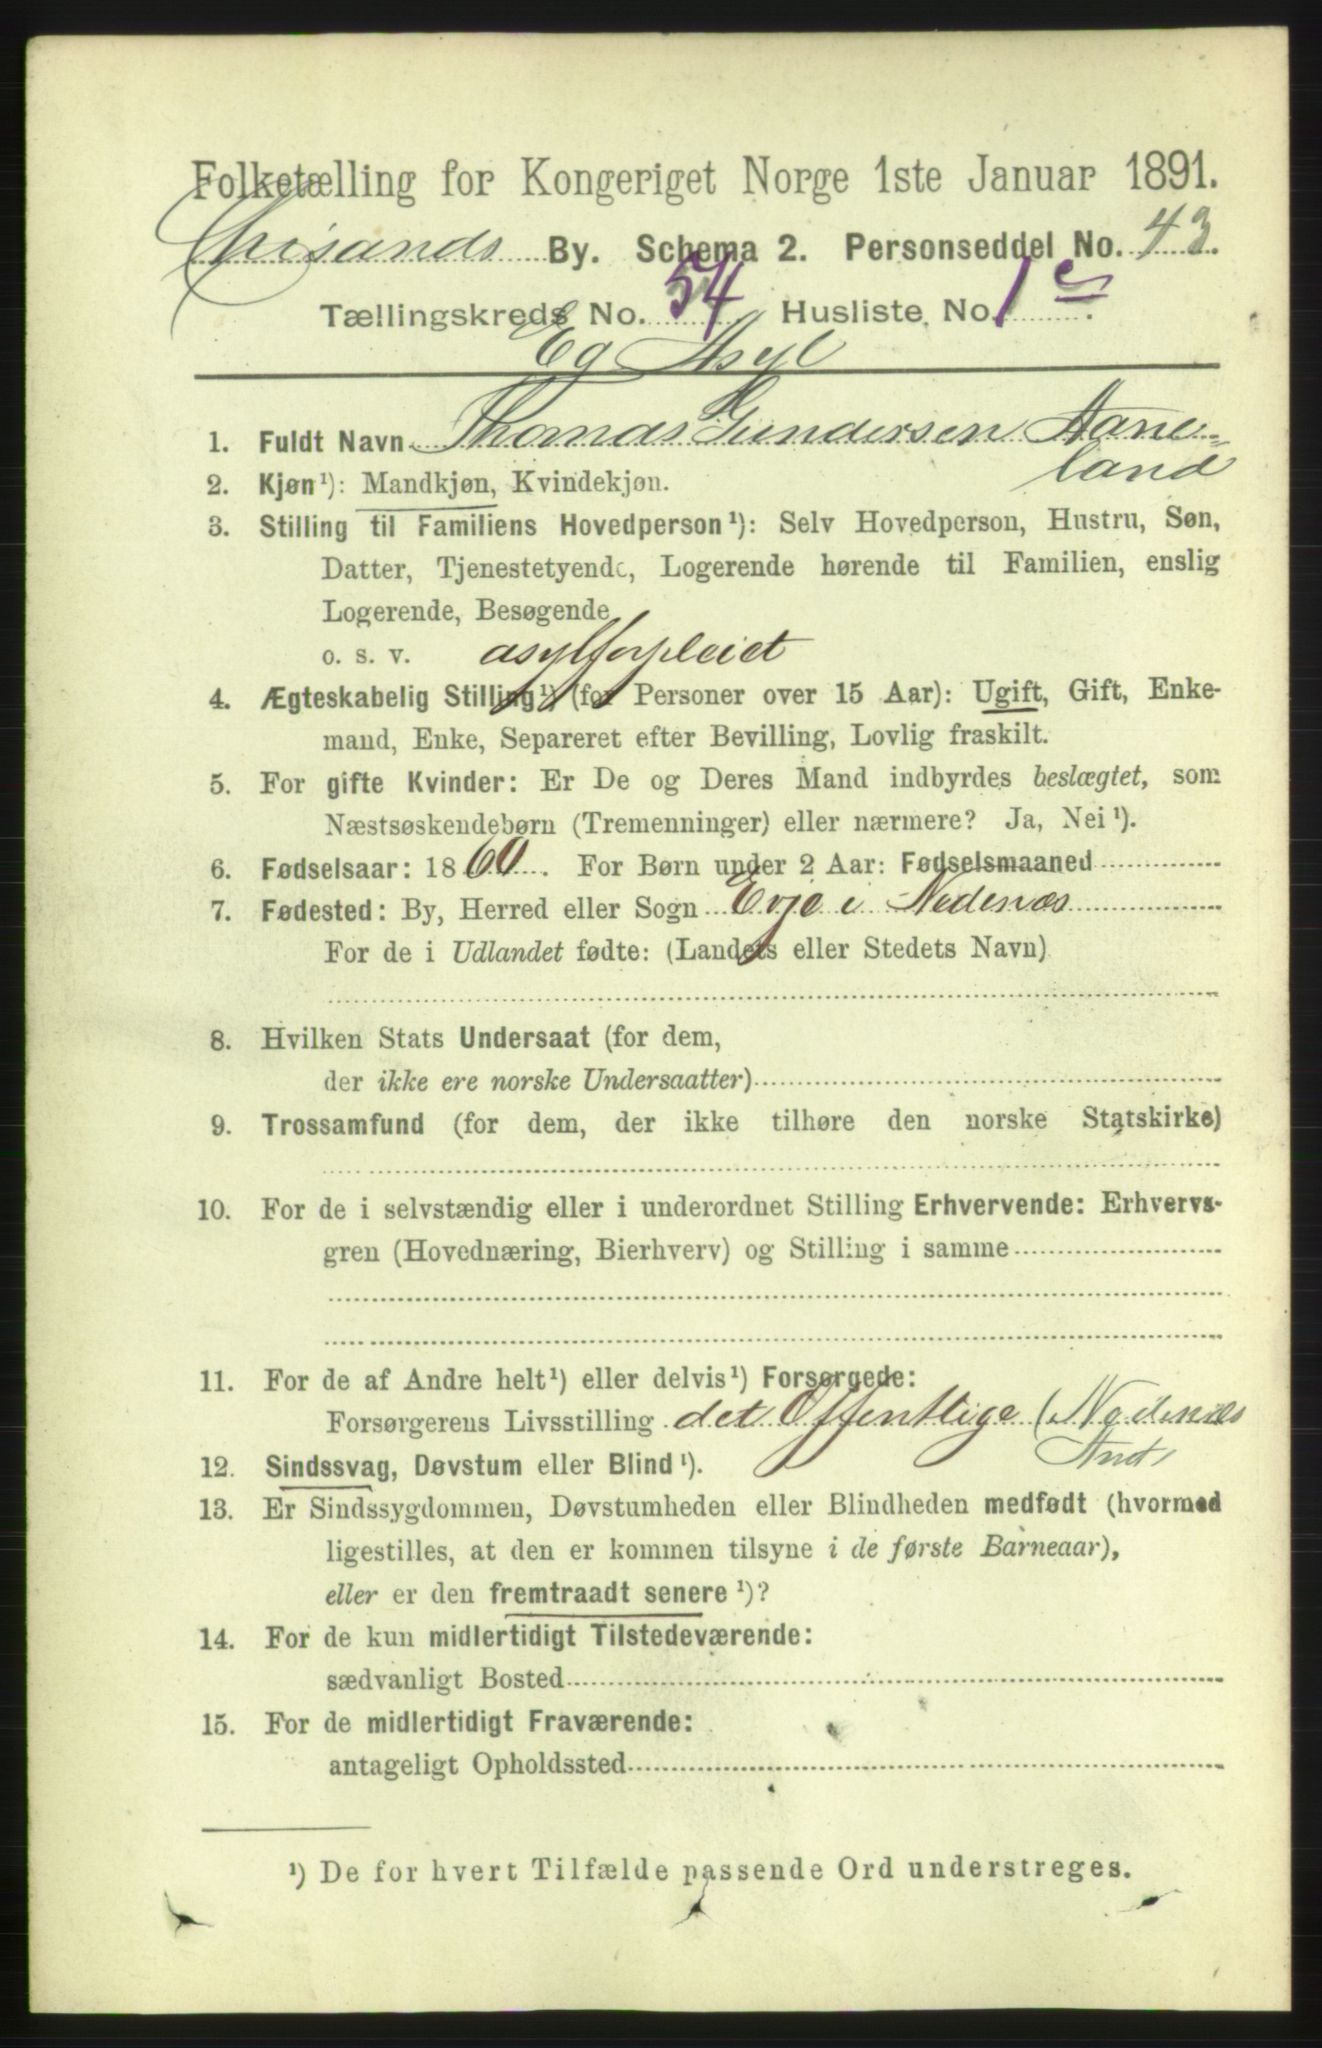 Folketælling for Kongeriget Norge 1ste Januar 1891.
Chrisands By. Schema 2. Personseddel No. 43.
Tællingskreds No. 54 Husliste No. 1 c.
Eg Asyl
1. Fuldt Navn Thomas Gundersen Aane=
land
2. Kjøn¹): Mandkjøn, Kvindekjøn.
3. Stilling til Familiens Hovedperson¹): Selv Hovedperson, Hustru, Søn,
Datter, Tjenestetyende, Logerende hørende til Familien, enslig
Logerende, Besøgende
o. s. v. asylforpleiet
4. Ægteskabelig Stilling¹) (for Personer over 15 Aar): Ugift, Gift, Enke-
mand, Enke, Separeret efter Bevilling, Lovlig fraskilt.
5. For gifte Kvinder: Er De og Deres Mand indbyrdes beslægtet, som
Næstsøskendebørn (Tremenninger) eller nærmere? Ja, Nei¹).
6. Fødselsaar: 1860. For Børn under 2 Aar: Fødselsmaaned
7. Fødested: By, Herred eller Sogn Evje i Nedenæs
For de i Udlandet fødte: (Landets eller Stedets Navn)
8. Hvilken Stats Undersaat (for dem,
der ikke ere norske Undersaatter)
9. Trossamfund (for dem, der ikke tilhøre den norske Statskirke)
10. For de i selvstændig eller i underordnet Stilling Erhvervende: Erhvervs-
gren (Hovednæring, Bierhverv) og Stilling i samme
11. For de af Andre helt¹) eller delvis¹) Forsørgede:
Forsørgerens Livsstilling det Offentlige (Nedenæs
Amt)
12. Sindssvag, Døvstum eller Blind¹).
13. Er Sindssygdommen, Døvstumheden eller Blindheden medfødt (hvormed
ligestilles, at den er kommen tilsyne i de første Barneaar),
eller er den fremtraadt senere¹)?
14. For de kun midlertidigt Tilstedeværende:
sædvanligt Bosted
15. For de midlertidigt Fraværende:
antageligt Opholdssted
¹) De for hvert Tilfælde passende Ord understreges.